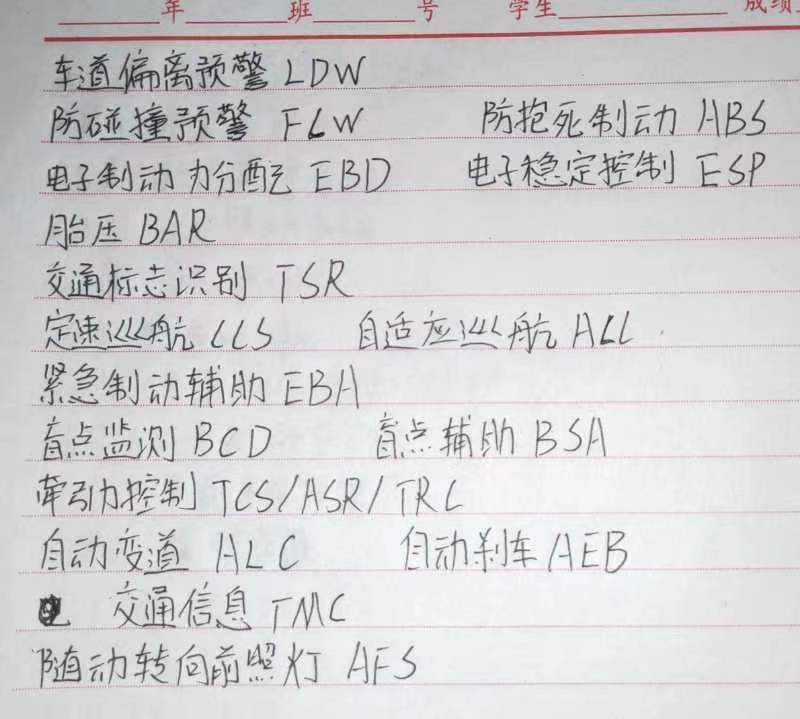 年 班 号 学生 成绩
车道偏离预警 LDW
防碰撞预警 FCW 防抱死制动 ABS
电子制动力分配 EBD 电子稳定控制 ESP
胎压 BAR
交通标志识别 TSR
定速巡航 CCS 自适应巡航 ACC
紧急制动辅助 EBA
盲点监测 BCD 盲点辅助 BSA
牵引力控制 TCS/ASR/TRC
自动变道 ALC 自动刹车 AEB
交通信息 TMC
随动转向前照灯 AFS